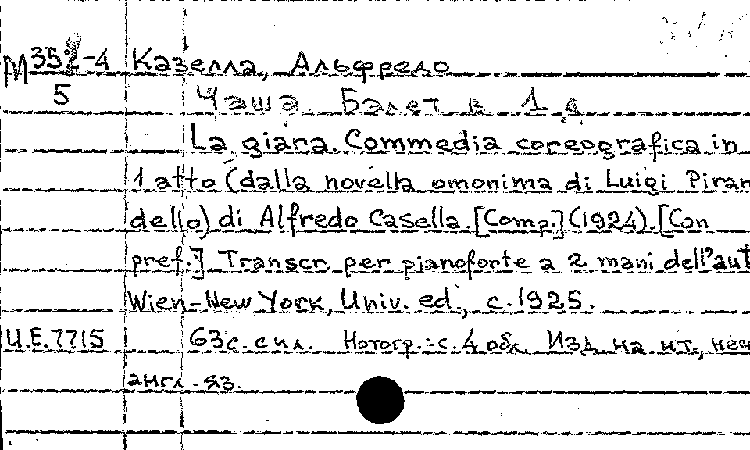 М 352-4 Казелла, Альфредо
5 Чаша. Балет в 1 д.
La giara. Commedia coreografica in
1 atto (dalla novella omonima di Luigi Piran
dello) di Alfredo Casella. [Comp.] (1924). [Con
pref.] Transcr. per pianoforte a 2 mani dell'aut
Wien-New York, Univ. ed., c.1925.
U.E.7715 63с. с ил. Нотогр.: с.4 обл. Изд. на ит., нем
англ. яз.